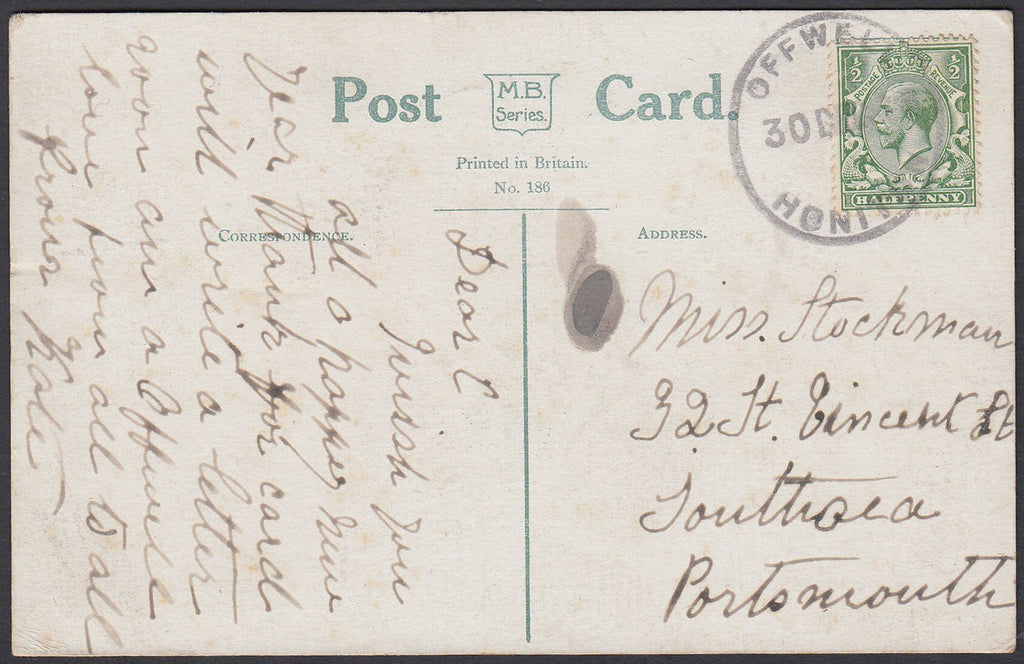 Post Card.
M.B.
Series.
Printed in Britain.
No. 186
CORRESPONDENCE.
ADDRESS.
OFFWELL
30 D
HONI
½ ½
POSTAGE REVENUE
HALFPENNY
Dear C
I wish you
all a happy new
year thank for card
will write a letter
soon am a Offwell
love from all to all
from Kate
Miss. Stockman
32 St. Vincent St
Southsea
Portsmouth